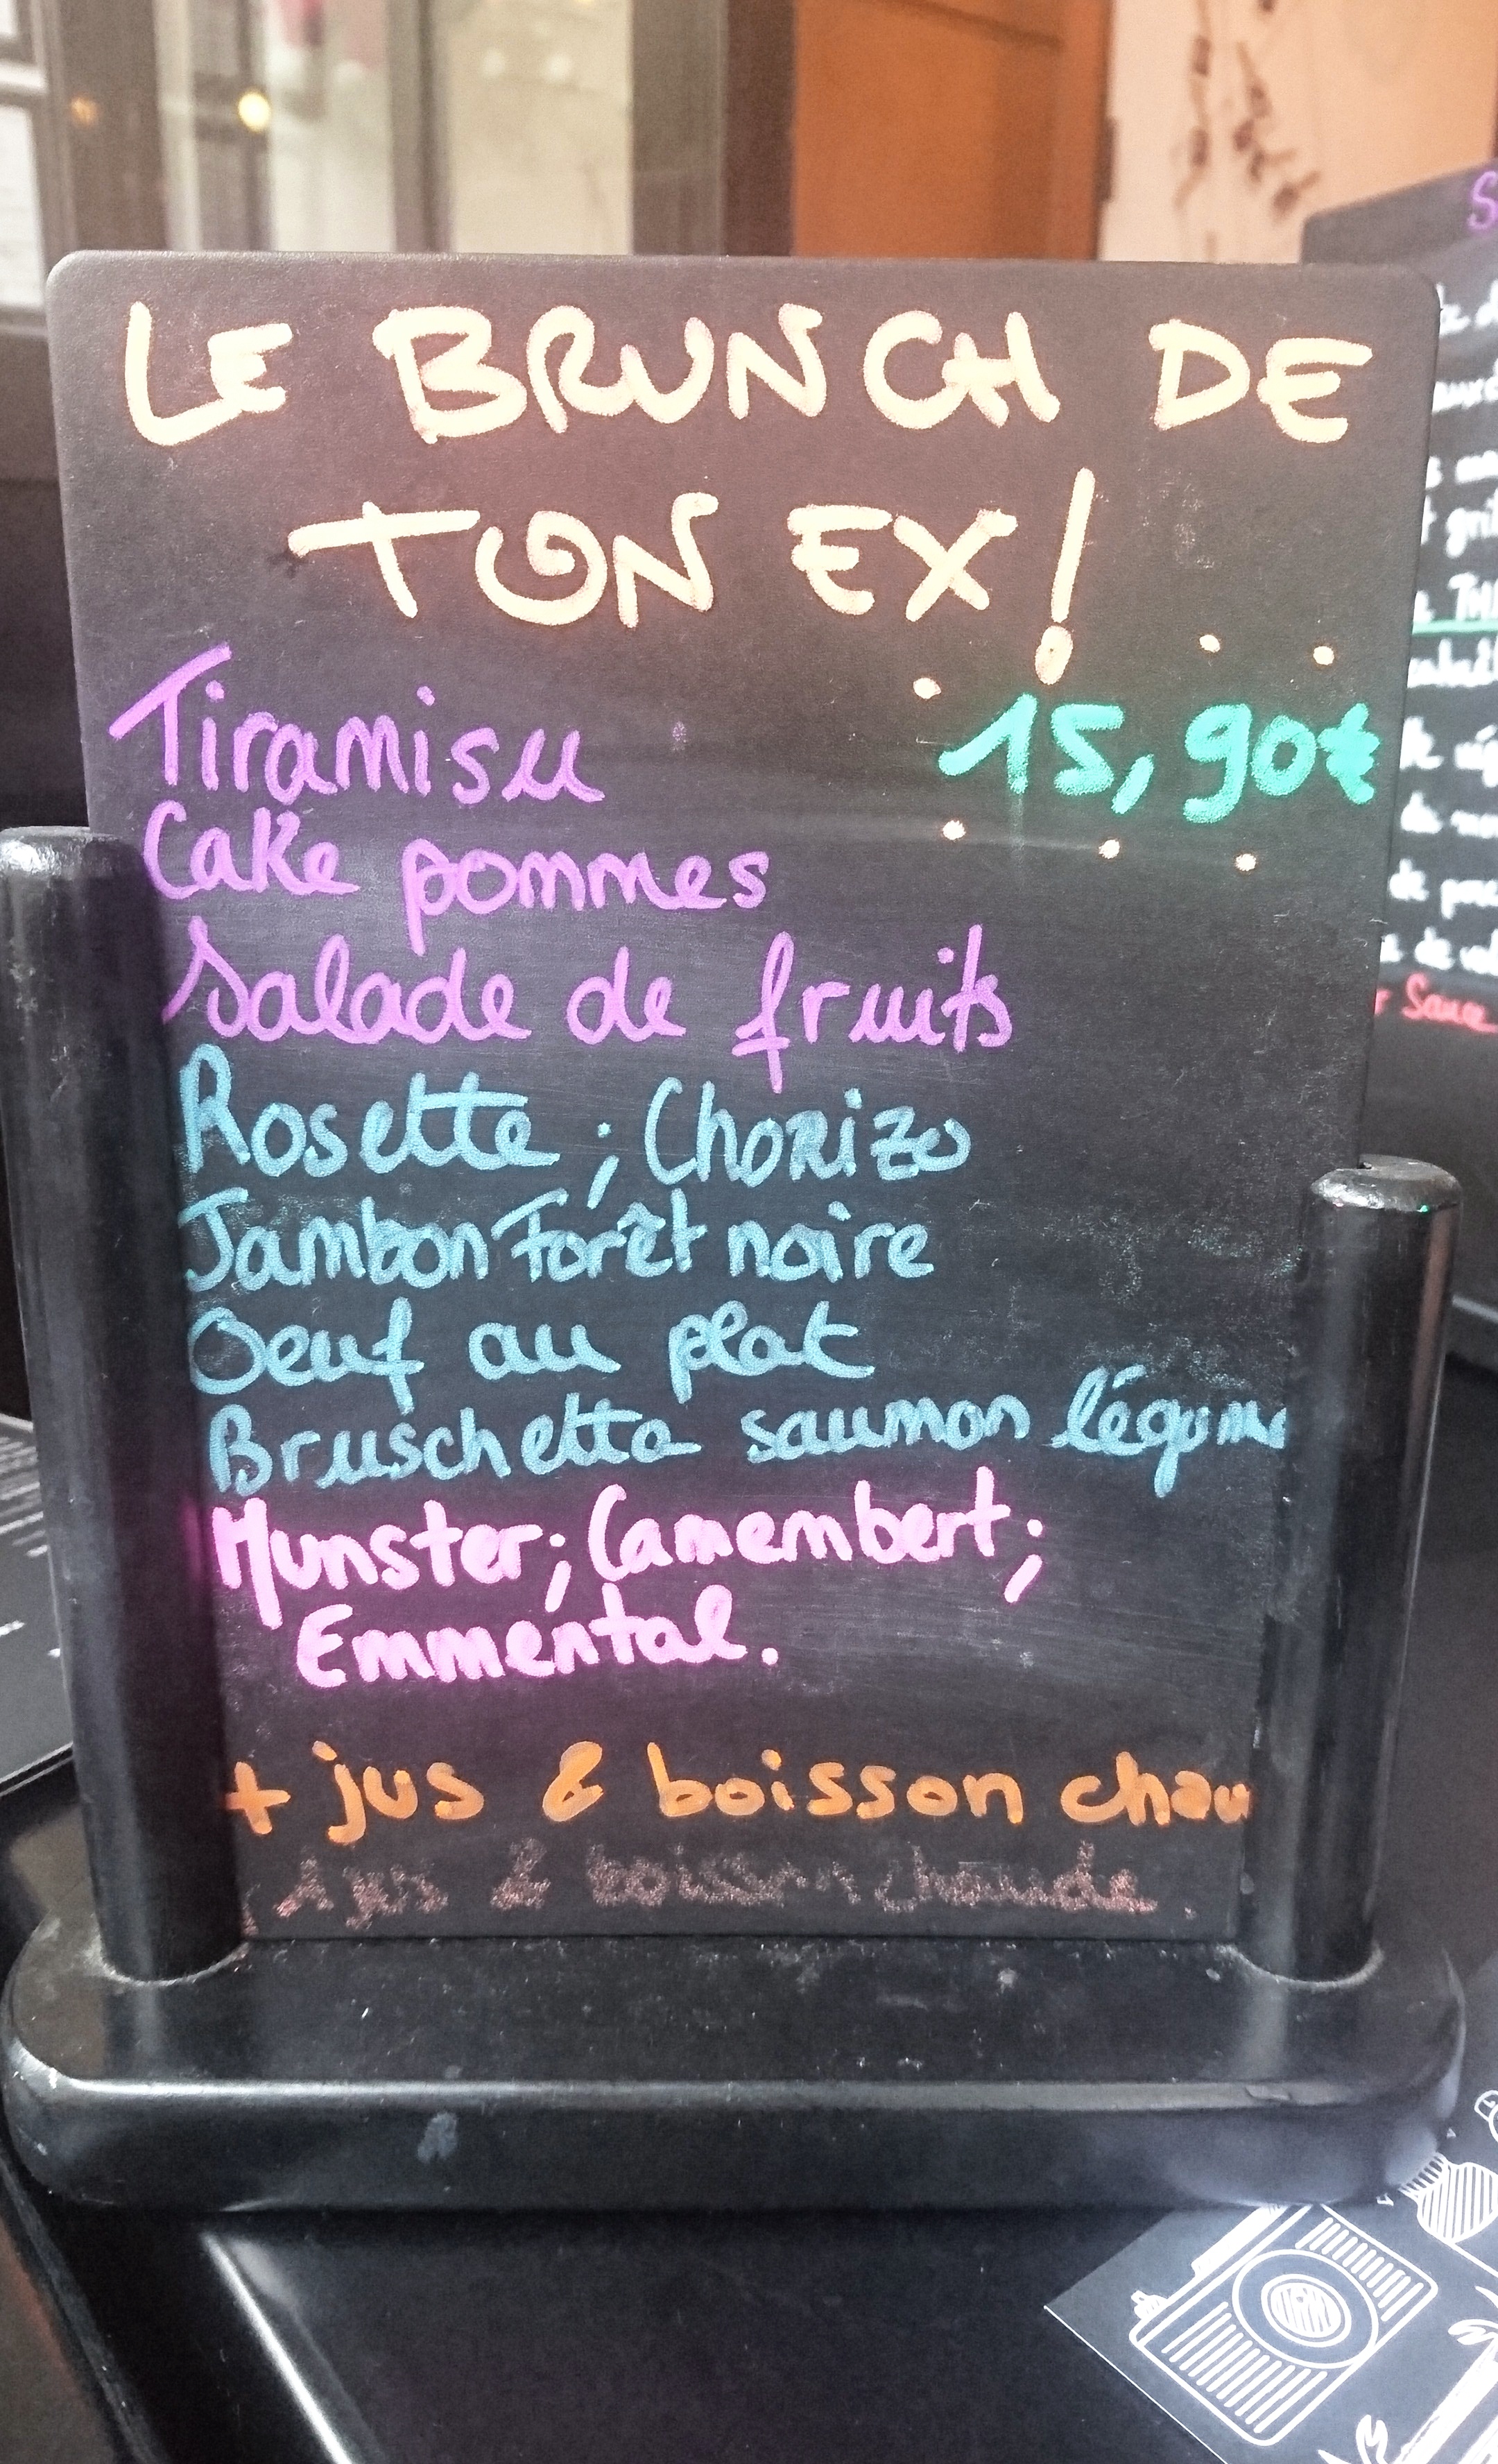 LE BRUNCH DE
TON EX !
Tiramisu
15,90€
Cake pommes
Salade de fruits
Rosette ; Chorizo
Jambon Forêt noire
Oeuf au plat
Bruschetta saumon légume
Munster ; Camembert ;
Emmental.
+ jus & boisson chau
1 jus & boisson chaude
Sauce